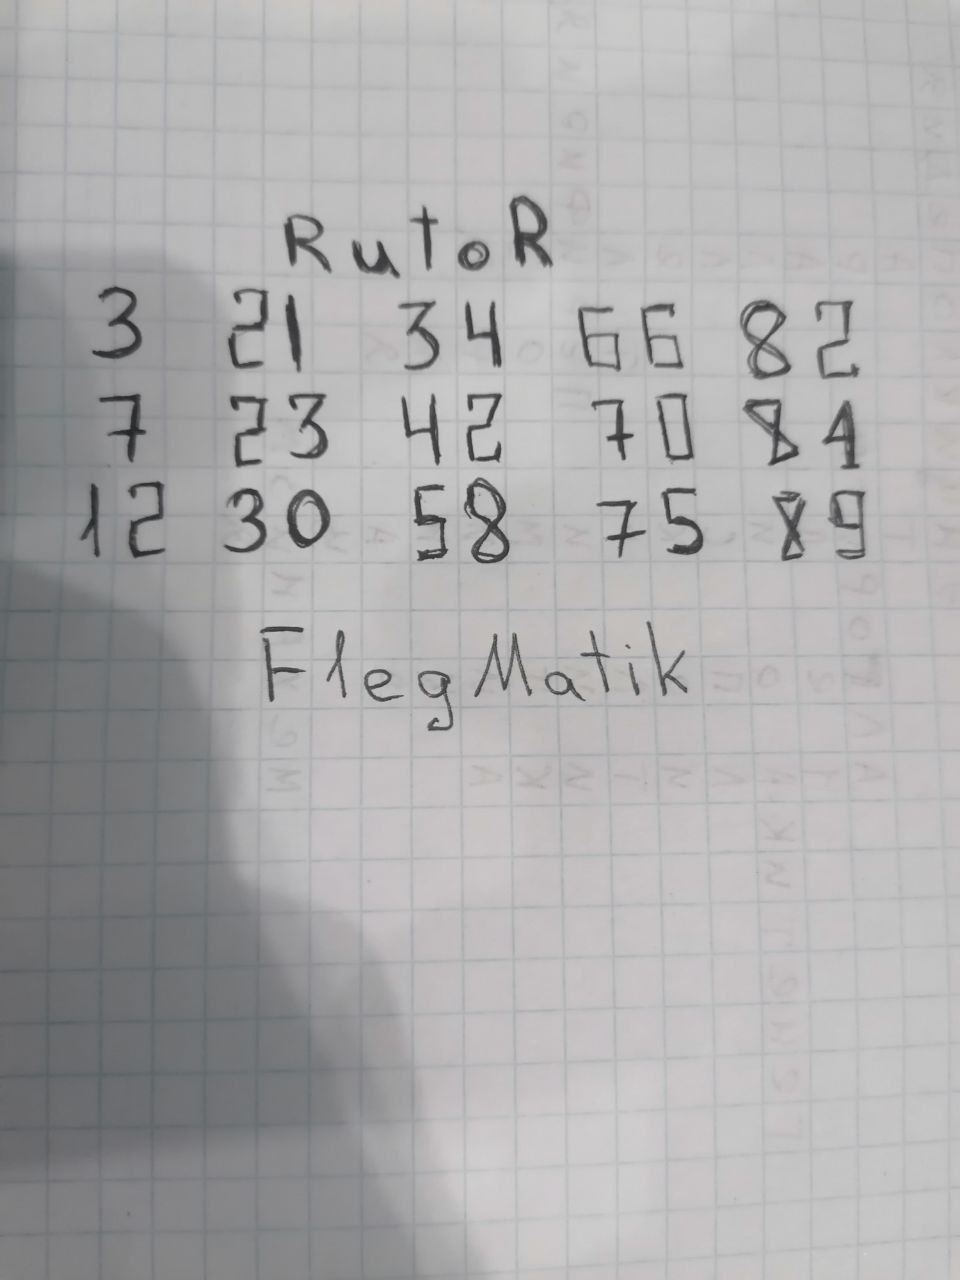 RutoR
3 21 34 66 82
7 23 42 70 84
12 30 58 75 89
FlegMatik